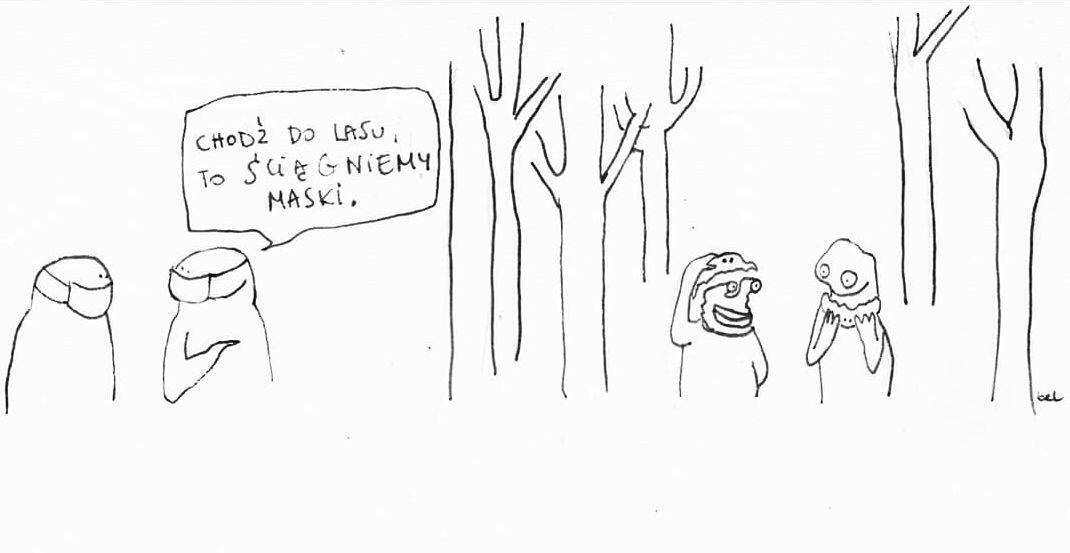 CHODŹ DO LASU,
TO ŚCIĄGNIEMY
MASKI.